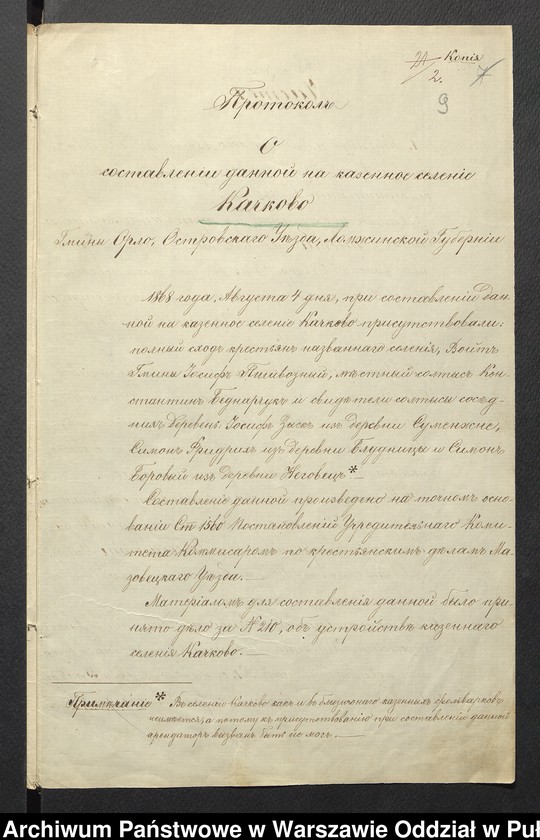 21 Копія
2. 7
9
Протоколъ
О
составленіи данной на казенное селеніе
Качково
Гмины Орло, Островскаго Уѣзда, Ломжинской Губерніи
1868 года, Августа 4 дня, при составленіи дан-
ной на казенное селеніе Качково присутствовали:
полный сходъ крестьянъ названнаго селенія, Войтъ
Гмины Іосифъ Пшивозный, мѣстный солтысъ Кон-
стантинъ Беднарчукъ и свидѣтели солтысы сосѣд-
нихъ деревень: Іосифъ Заскъ изъ деревни Суменжне,
Симонъ Фридрихъ изъ деревни Блудницы и Симонъ
Боровый изъ деревни Неговецъ *
Составленіе данной произведено на точномъ осно-
ваніи Ст 1560 Постановленій Учредительнаго Коми-
тета Коммисаромъ по крестьянскимъ дѣламъ Ма-
зовецкаго Уѣзда. —
Матеріаломъ для составленія данной было при-
нято дѣло за № 210, объ устройствѣ казеннаго
селенія Качково. —
Примѣчаніе * Въ селеніи Качково какъ и въ близи онаго казенныхъ фольварковъ
неимѣется, а потому къ присутствованію при составленіи данной
арендаторъ вызванъ быть не могъ. —
Archiwum Państwowe w Warszawie Oddział w Puł